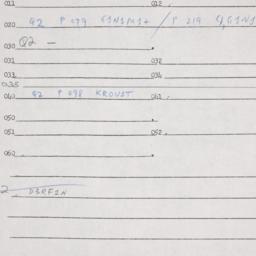 011 012
020 Q2 P 079 G1N1M1+ / P 219 Q,G1N1
030 Q2 —
031 032
033 034
035
040 Q2 P 098 KROUST 041
050
051 052
060
2 D3RF1N